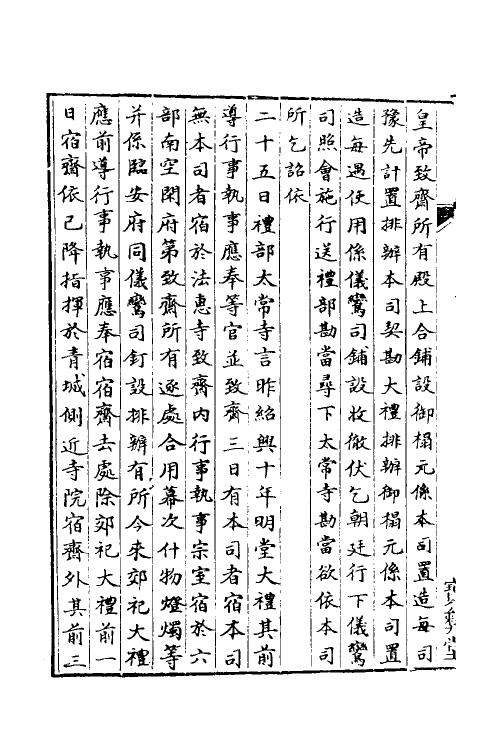 皇帝致齋所有殿上合鋪設御榻元係本司置造每司
豫先計置排辦本司契勘大禮排辦御榻元係本司置
造每遇使用係儀鸞司鋪設收徹伏乞朝廷行下儀鸞
司照會施行送禮部勘當尋下太常寺勘當欲依本司
所乞詔依
二十五日禮部太常寺言昨紹興十年明堂大禮其前
導行事執事應奉等官並致齋三日有本司者宿本司
無本司者宿於法惠寺致齋內行事執事宗室宿於六
部南空閑府第致齋所有逐處合用幕次什物燈燭等
并係臨安府同儀鸞司釘設排辦有所今來郊祀大禮
應前導行事執事應奉宿宿齋去處除郊祀大禮前一
日宿齋依已降指揮於青城側近寺院宿齋外其前三